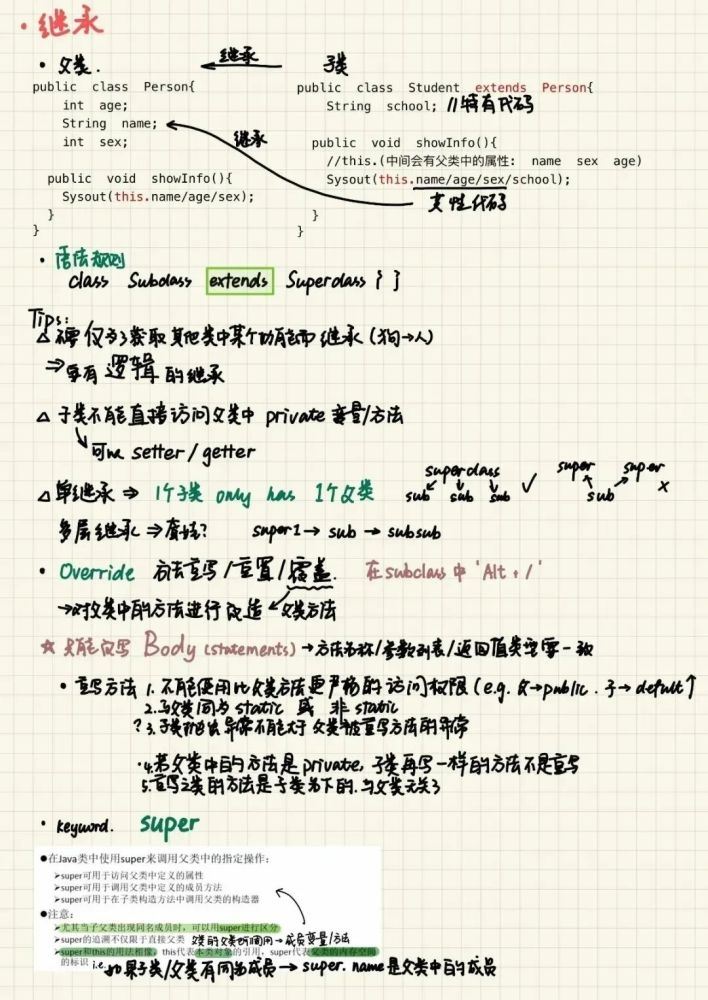 • 继承
• 父类. ←继承— 子类
public class Person{
int age;
String name;
int sex;
public void showInfo(){
Sysout(this.name/age/sex);
}
}
public class Student extends Person{
String school; //特有代码
继承
public void showInfo(){
//this.(中间会有父类中的属性: name sex age)
Sysout(this.name/age/sex/school);
共性代码
}
}
• 语法规则
class Subclass extends Superclass { }
Tips:
△ 不要仅为了获取其他类中某个功能而继承 (狗→人)
⇒ 要有逻辑的继承
△ 子类不能直接访问父类中 private 变量/方法
可以 setter / getter
△ 单继承 ⇒ 1个子类 only has 1个父类
superclass
sub sub sub ✓
super super
sub ×
多层继承 ⇒ 套娃? super1 → sub → subsub
• Override 方法重写/重置/覆盖. 在subclass中 'Alt + /'
→对父类中的方法进行改造 ← 父类方法
☆ 只能重写 Body (statements) → 方法名称/参数列表/返回值类型要一致
• 重写方法 1. 不能使用比父类方法更严格的访问权限 (e.g. 父→public. 子→defult↑
2. 与父类同为 static 或 非 static
? 3. 子类抛出异常不能大于父类被重写方法的异常
• 4. 若父类中的方法是 private, 子类再写一样的方法不是重写
5. 重写之类的方法是子类名下的. 与父类无关了
• keyword. super
●在Java类中使用super来调用父类中的指定操作:
➢super可用于访问父类中定义的属性
➢super可用于调用父类中定义的成员方法
➢super可用于在子类构造方法中调用父类的构造器
●注意:
➢尤其当子父类出现同名成员时，可以用super进行区分
➢super的追溯不仅限于直接父类 父类的父类 → 成员变量/方法
➢super和this的用法相像，this代表本类对象的引用，super代表父类的内存空间
的标识 i.e. 如果子类/父类有同名成员 → super. name是父类中的成员